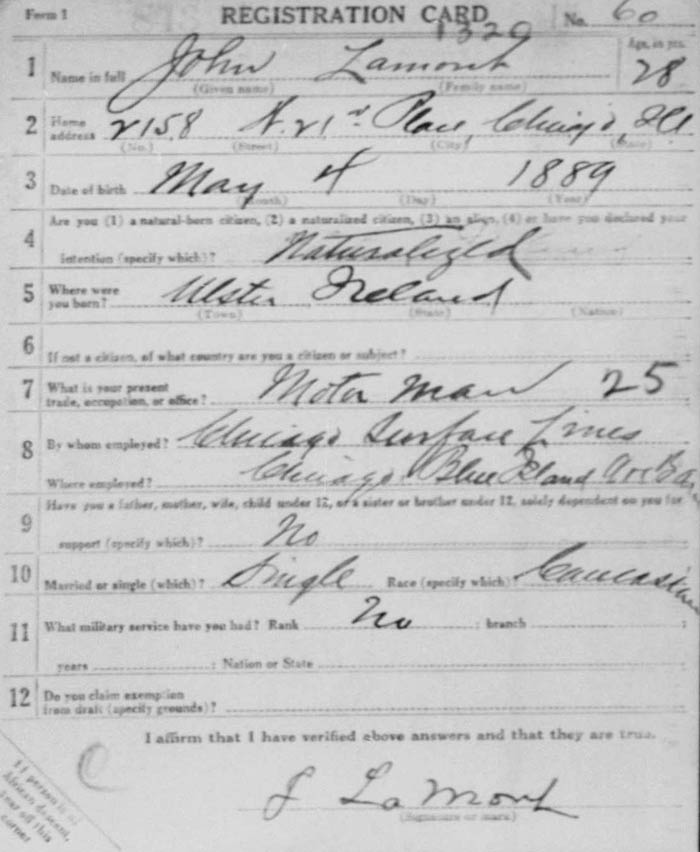 Form 1 REGISTRATION CARD No. 60
1320
1 Name in full John Lamont Age, in yrs. 28
(Given name) (Family name)
2 Home address 2158 N. 21st Place, Chicago, Ill
(No.) (Street) (City) (State)
3 Date of birth May 4 1889
(Month) (Day) (Year)
4 Are you (1) a natural-born citizen, (2) a naturalized citizen, (3) an alien, (4) or have you declared your
intention (specify which)? Naturalized
5 Where were you born? Ulster Ireland
(Town) (State) (Nation)
6 If not a citizen, of what country are you a citizen or subject?
7 What is your present trade, occupation, or office? Motor man 25
8 By whom employed? Chicago Surface Lines
Where employed? Chicago Blue Island
9 Have you a father, mother, wife, child under 12, or a sister or brother under 12, solely dependent on you for
support (specify which)? No
10 Married or single (which)? Single Race (specify which)? Caucasian
11 What military service have you had? Rank No ; branch ;
years ; Nation or State
12 Do you claim exemption
from draft (specify grounds)?
I affirm that I have verified above answers and that they are true.
J LaMont
(Signature or mark)
If person is of
African descent,
tear off this
corner